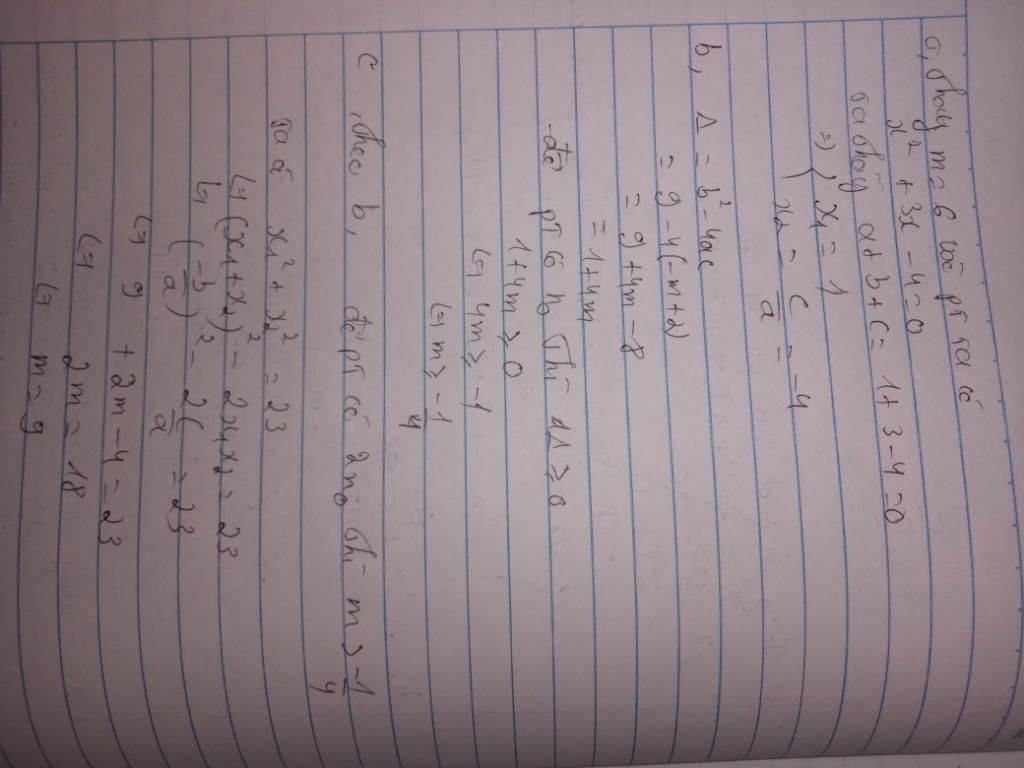 a, thay m=6 vào pt ta có
x² + 3x - 4 = 0
ta thấy a+b+c = 1+3-4=0
=> { x1 = 1
x2 = c/a = -4
b, Δ = b² - 4ac
= 9 - 4(-m+2)
= 9 + 4m - 8
= 1+4m
để pt có n0 thì Δ ≥ 0
1+4m ≥ 0
<=> 4m ≥ -1
<=> m ≥ -1/4
c, theo b, để pt có 2 n0 thì m > -1/4
ta có x1² + x2² = 23
<=> (x1+x2)² - 2x1x2 = 23
<=> (-b/a)² - 2c/a = 23
<=> 9 + 2m - 4 = 23
<=> 2m = 18
<=> m = 9